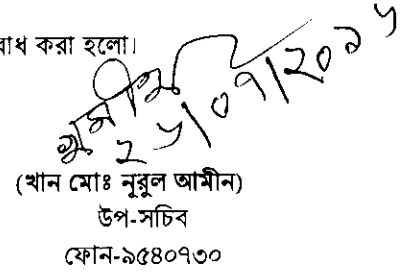 াধ করা হলো।
২৮/০৭/২০১৮
(খান মোঃ নূরুল আমীন)
উপ-সচিব
ফোন-৯৫৪০৭৩০